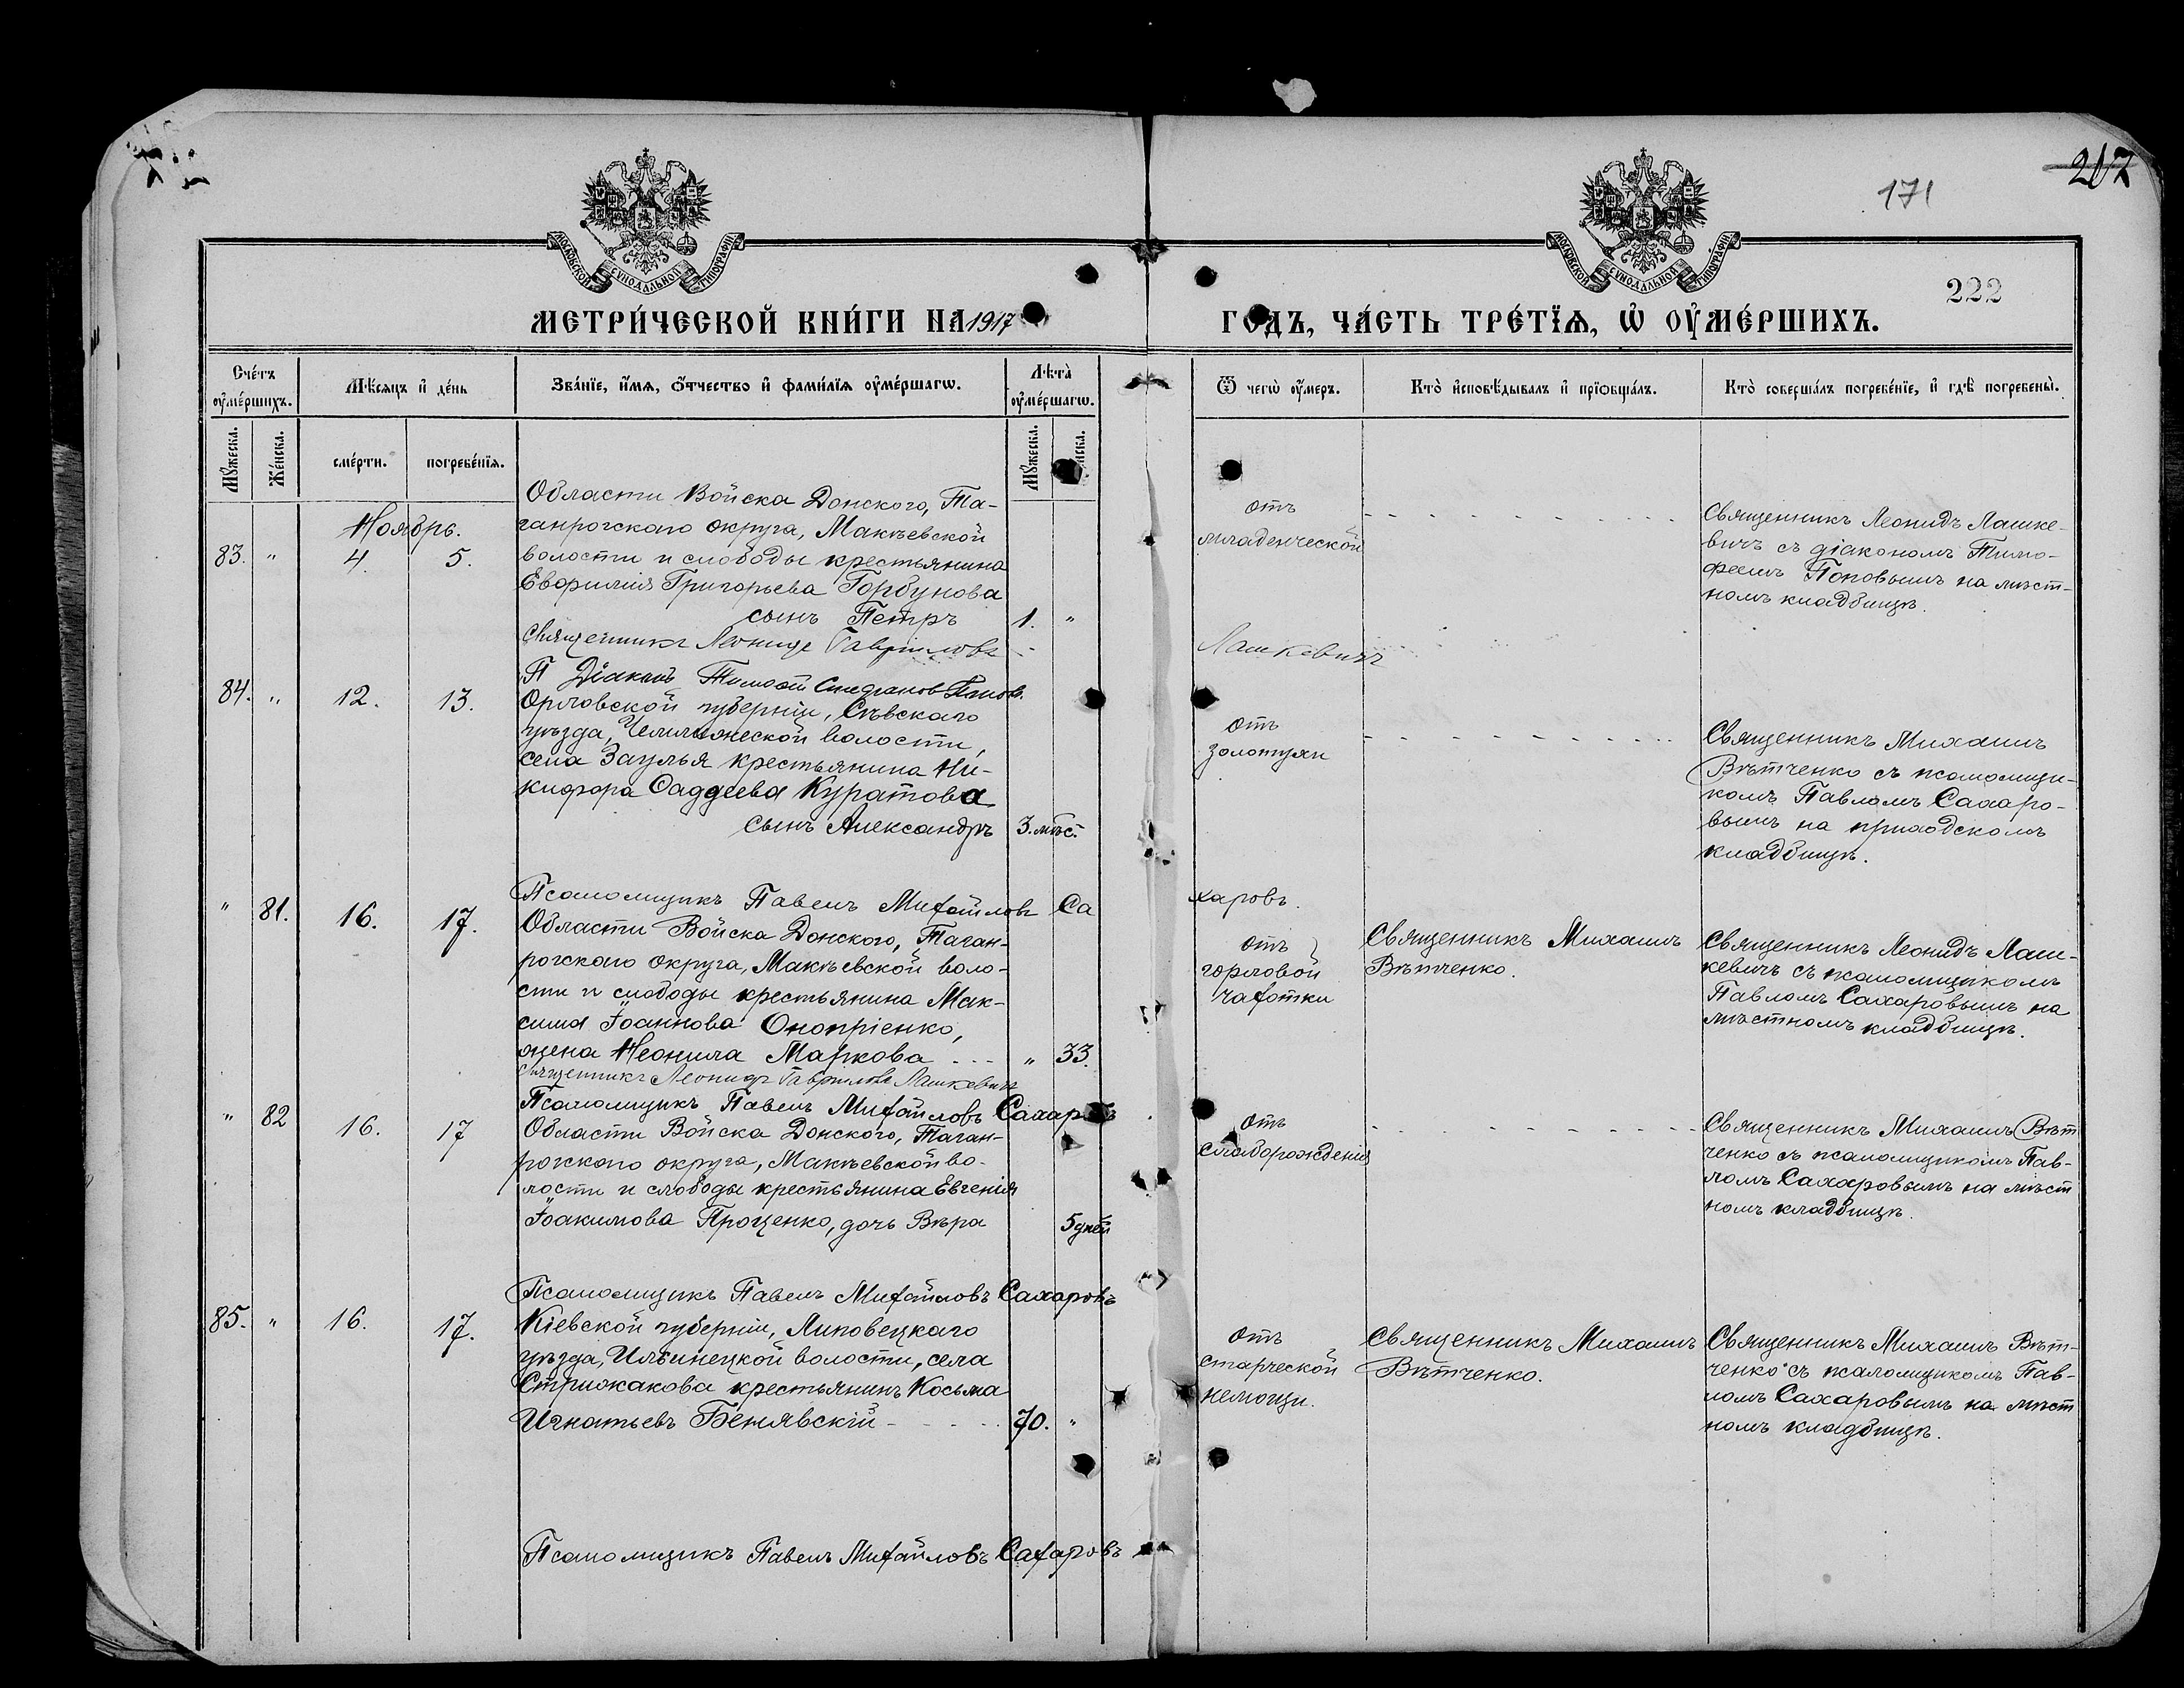 207
171
МОСКОВСКОЙ СѴНОДАЛЬНОЙ ТИПОГРАФІИ
МОСКОВСКОЙ СѴНОДАЛЬНОЙ ТИПОГРАФІИ
222
МЕТРИ́ЧЕСКОЙ КНИ́ГИ НА 1917 ГОДЪ, ЧА́СТЬ ТРЕ́ТЇѦ, Ѽ ОУ҆МЕ́РШИХЪ.
Сче́тъ оу҆ме́ршихъ.
Мѣ́сяцъ и҆ де́нь
Зва́нїе, и҆́мѧ, ѻ҆́тчество и҆ фами́лїѧ оу҆ме́ршагѡ.
Лѣ́та оу҆ме́ршагѡ.
Ѿ чегѡ̀ оу҆́меръ.
Кто̀ и҆сповѣ́дывалъ и҆ прїѡбща́лъ.
Кто̀ соверша́лъ погребе́нїе, и҆ гдѣ̀ погребены̀.
Мꙋ́жеска.
Же́нска.
сме́рти.
погребе́нїѧ.
Мꙋ́жеска.
Ноябрь.
83. " 4. 5.
Области Войска Донского, Та-
ганрогскаго округа, Макѣевской
волости и слободы крестьянина
Евфимія Григорьева Горбунова
сынъ Петръ 1. "
отъ
младенческой
Священникъ Леонидъ Лашке-
вичъ съ діакономъ Тимо-
феемъ Поповымъ на мѣст-
номъ кладбищѣ.
Священникъ Леонидъ Гавриловъ Лашкевичъ
Діаконъ Тимофей Стефановъ Поповъ.
84. " 12. 13.
Орловской губерніи, Сѣвскаго
уѣзда, волости,
села Заулья крестьянина Ни-
кифора Фаддеева Куратова
сынъ Александръ 3. мѣс.
отъ
золотухи
Священникъ Михаилъ
Вѣтченко съ псаломщи-
комъ Павломъ Сахаро-
вымъ на приходскомъ
кладбищѣ.
Псаломщикъ Павелъ Михайловъ Сахаровъ.
" 81. 16. 17.
Области Войска Донского, Таган-
рогскаго округа, Макѣевской воло-
сти и слободы крестьянина Мак-
сима Іоаннова Оноприенко,
жена Неонила Маркова " 33.
отъ
горловой
чахотки
Священникъ Михаилъ
Вѣтченко.
Священникъ Леонидъ Лаш-
кевичъ съ псаломщикомъ
Павломъ Сахаровымъ на
мѣстномъ кладбищѣ.
Священникъ Леонидъ Гавриловъ Лашкевичъ
Псаломщикъ Павелъ Михайловъ Сахаровъ
" 82 16. 17
Области Войска Донского, Таган-
рогскаго округа, Макѣевской во-
лости и слободы крестьянина Евгенія
Іоакимова Проценко, дочь Вѣра 5 дней
отъ
слаборожденія
Священникъ Михаилъ Вѣт
ченко съ псаломщикомъ Пав-
ломъ Сахаровымъ на мѣст
номъ кладбищѣ.
Псаломщикъ Павелъ Михайловъ Сахаровъ
85. " 16. 17.
Кіевской губерніи, Липовецкаго
уѣзда, Ильинецкой волости, села
Стрижакова крестьянинъ Косьма
Игнатьевъ Бенявскій 70. "
отъ
старческой
немощи.
Священникъ Михаилъ
Вѣтченко.
Священникъ Михаилъ Вѣт-
ченко съ псаломщикомъ Пав-
ломъ Сахаровымъ на мѣст
номъ кладбищѣ.
Псаломщикъ Павелъ Михайловъ Сахаровъ